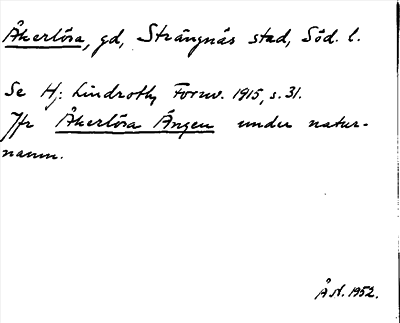 Åkerlösa, gd, Strängnäs stad, Söd. l.
Se Hj. Lindroth, Fornv. 1915, s. 31.
Jfr Åkerlösa Ängen under natur-
namn.
Å st. 1952.